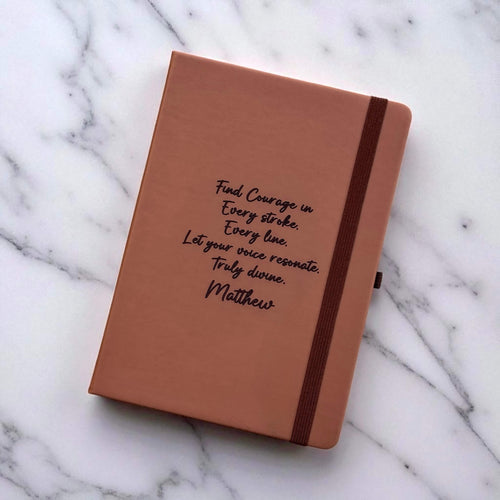 Find Courage in
Every stroke.
Every line.
Let your voice resonate.
Truly divine.
Matthew